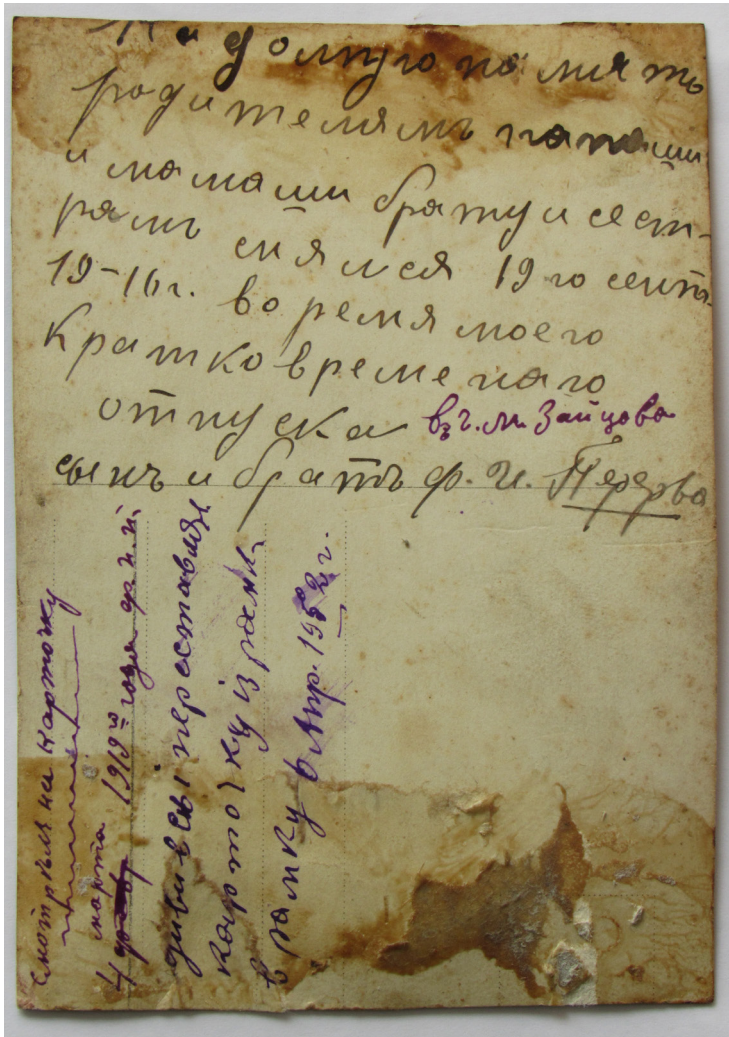 На долгую память
родителямъ папаши
и мамаши брату и сест-
рамъ снялся 19 го сентя.
19-16 г. во время моего
кратковременаго
отпуска въ г. м. Зайцова
сынъ и братъ Ф. И. Перерва
смотрѣлъ на карточку
4 марта 1919 го года
дивився переставляв
карточку із рамк
в рамку 6 Апр. 1952 г.